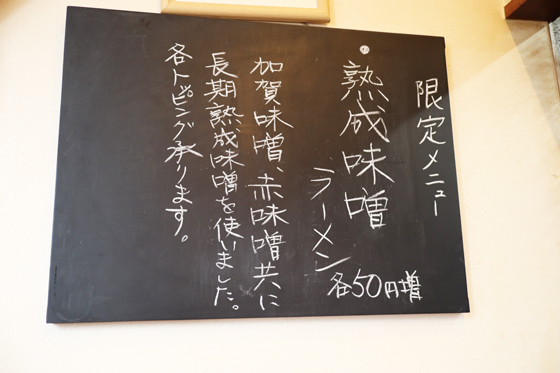 限定メニュー
熟成味噌
ラーメン
各50円増
加賀味噌、赤味噌共に
長期熟成味噌を使いました。
各トッピング承ります。